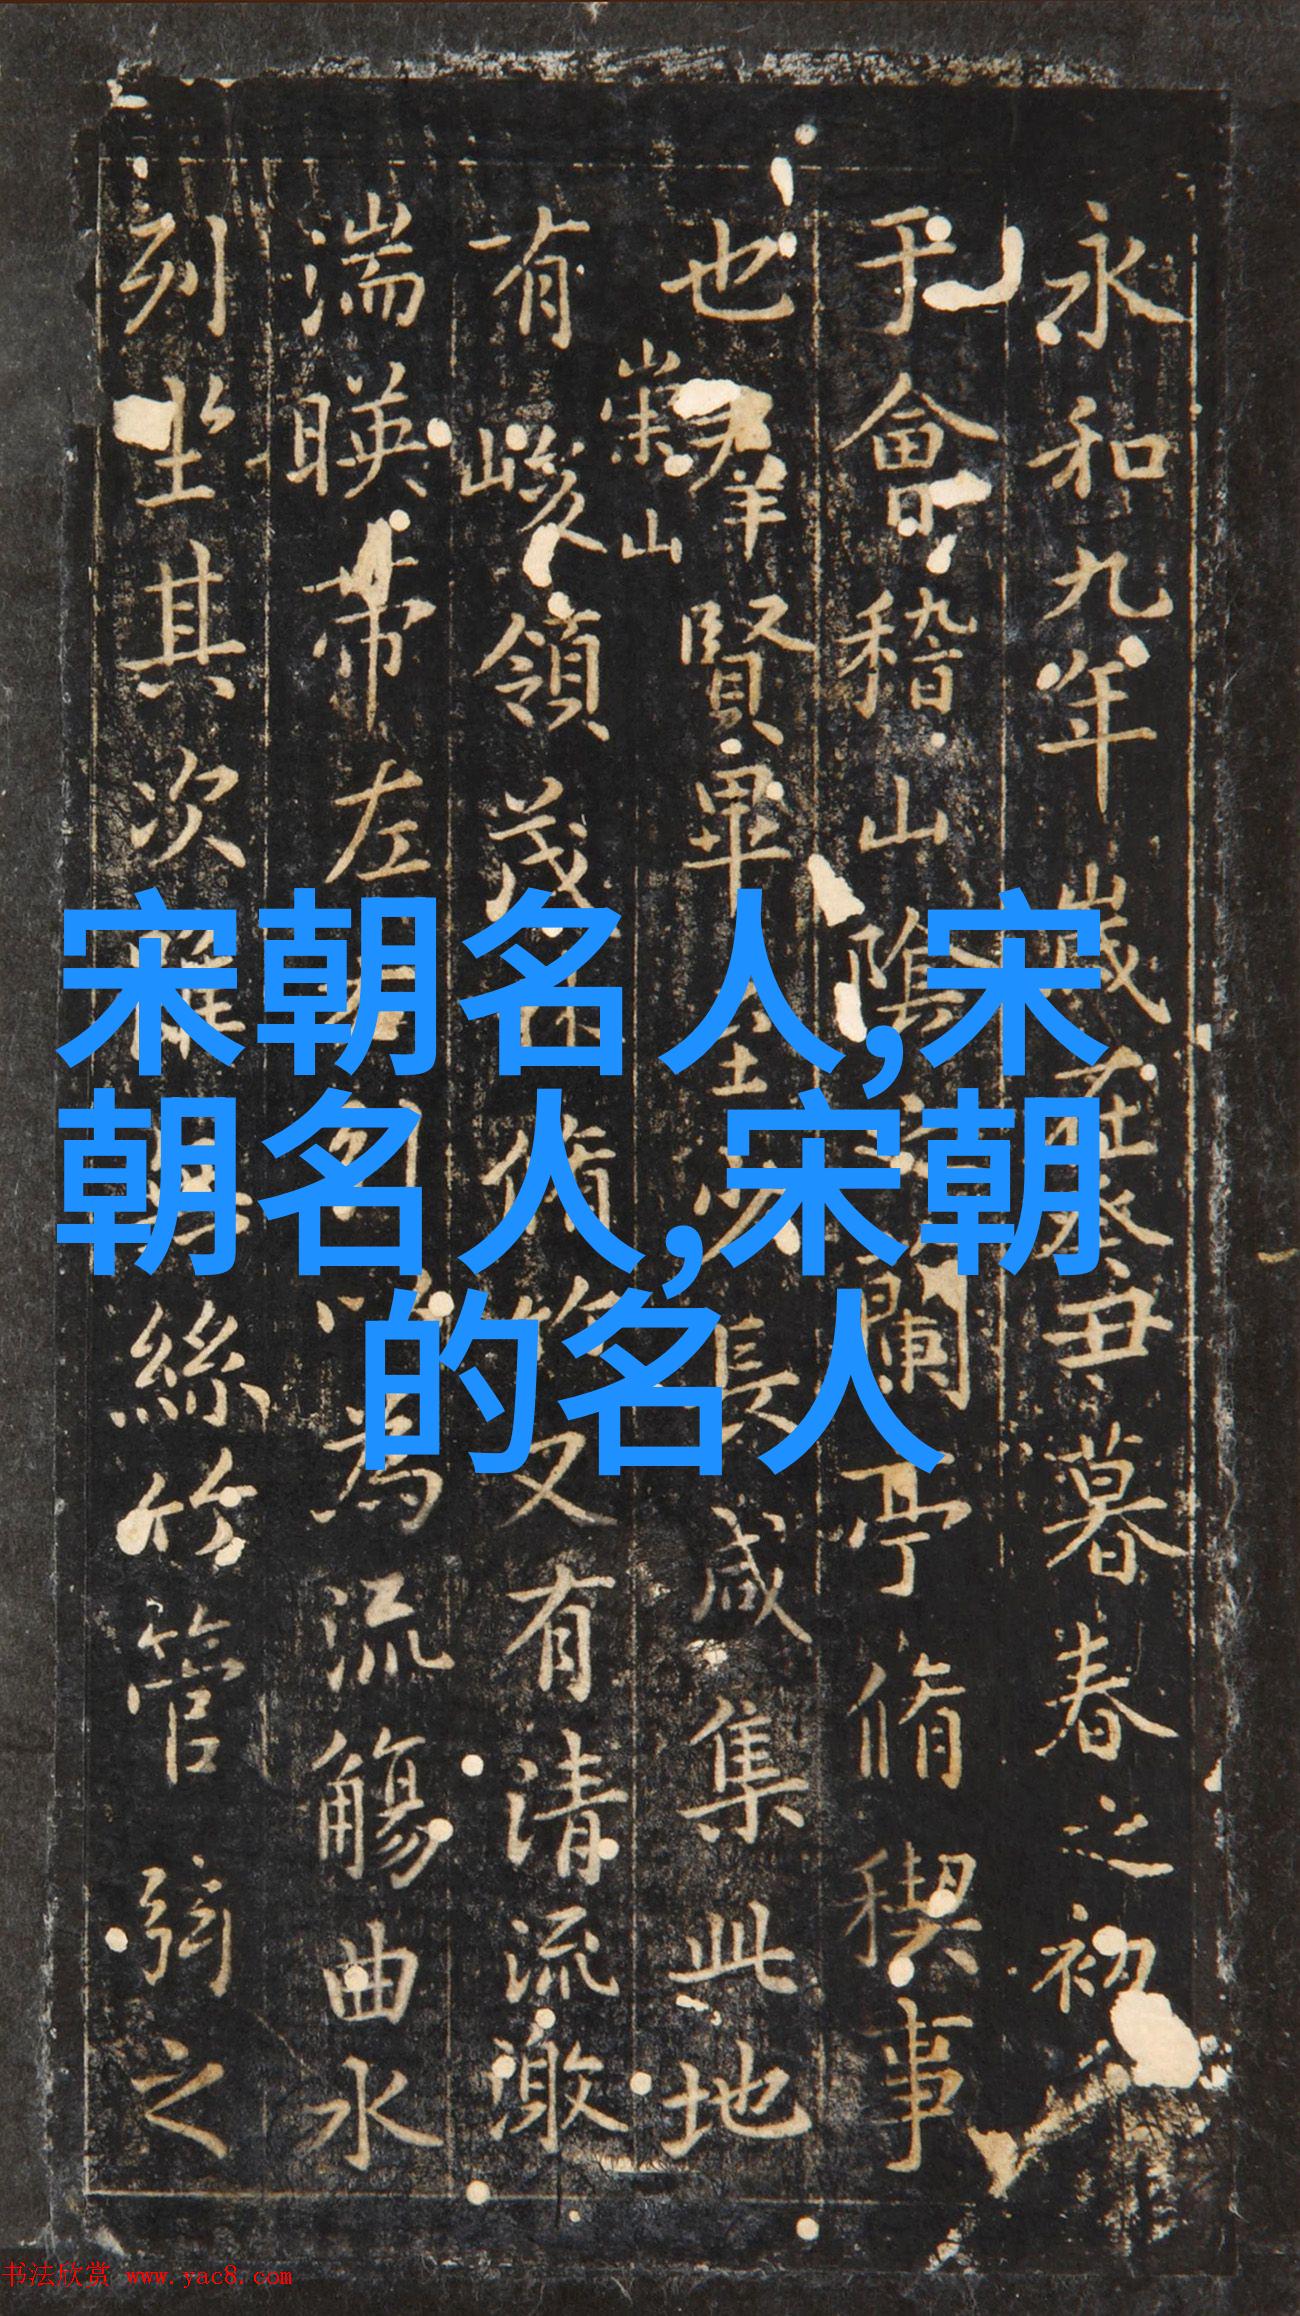 永和九年歲在癸丑暮春之初
于會稽山陰之蘭亭脩稧事
也羣賢畢至少長咸集此地
崇山
有峻領茂林脩竹又有清流激
湍暎帶左右引以為流觴曲水
列坐其次雖無絲竹管弦之
宋朝名人,宋
朝名人,宋朝
的名人
书法欣赏 www.yac8.com